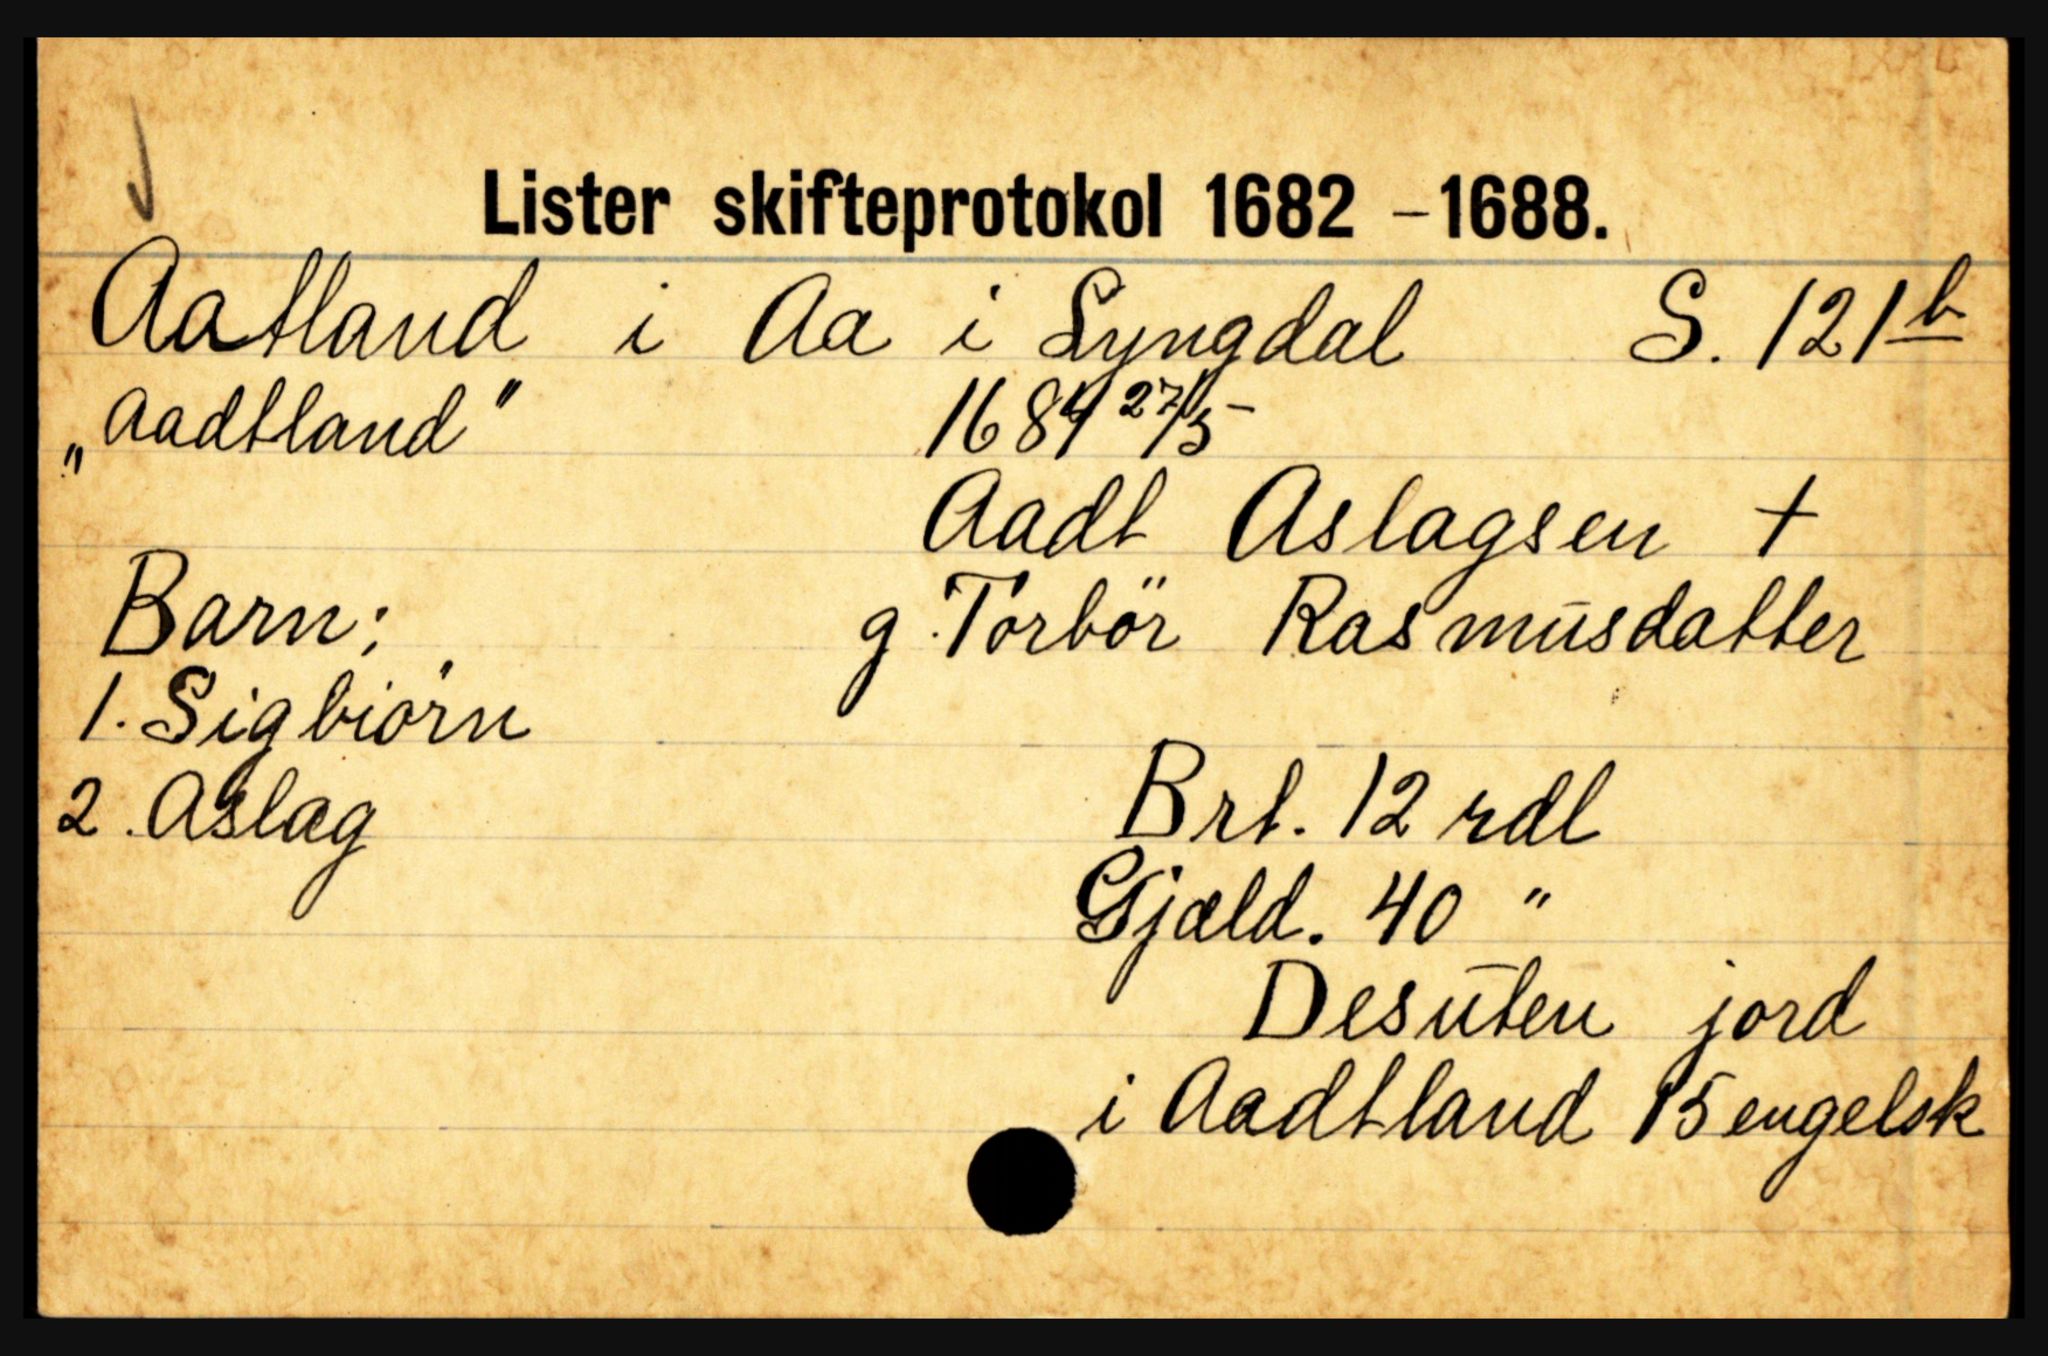 Lister skifteprotokol 1682 - 1688.
Aatland i Aa i Lyngdal S. 121 b
„Aadtland" 1684 27/5 -
Aadt Aslagsen +
Barn: g. Torbör Rasmusdatter
1. Sigbiörn
2. Aslag Brt. 12 rdl
Gjæld. 40 "
Desuten jord
i Aadtland 15 engelsk